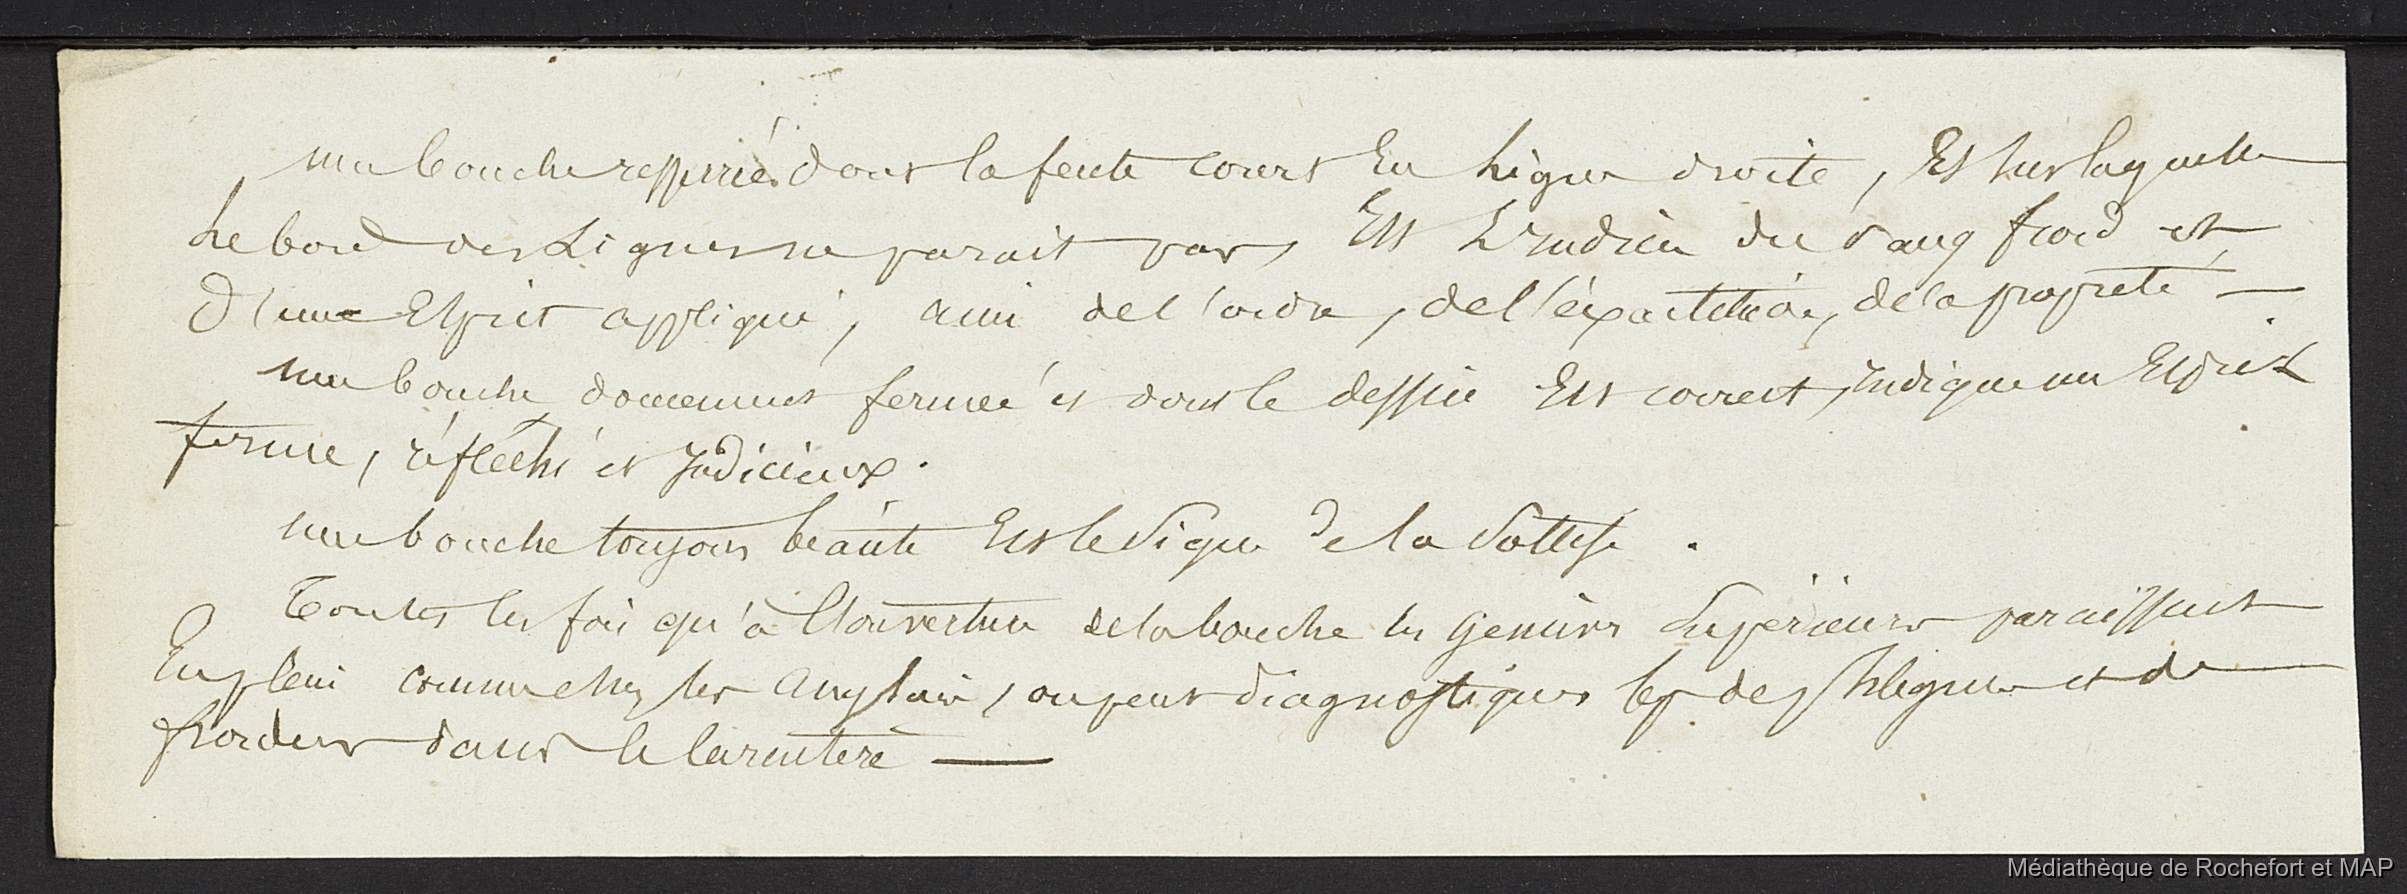 une bouche resserrée dont la fente cours En Ligne droite, Et sur laquelle
Le bord des Lignes ne parait pas, Est L'indice du sang froid et
d'une Esprit appliqué, ami de l'ordre, de l'éxactitude, de la propreté —
une bouche doucement fermée et dont le dessin Est correct, indique un Esprit
ferme, réfléchi et judicieux.
une bouche toujours béante Est le signe de la sottise.
Toutes les fois qu'a l'ouverture de la bouche les gencives supérieures paraissent
En plein comme chez les anglais, on peut diagnostiquer de flegme et de
froideur dans le caractère —
Médiathèque de Rochefort et MAP